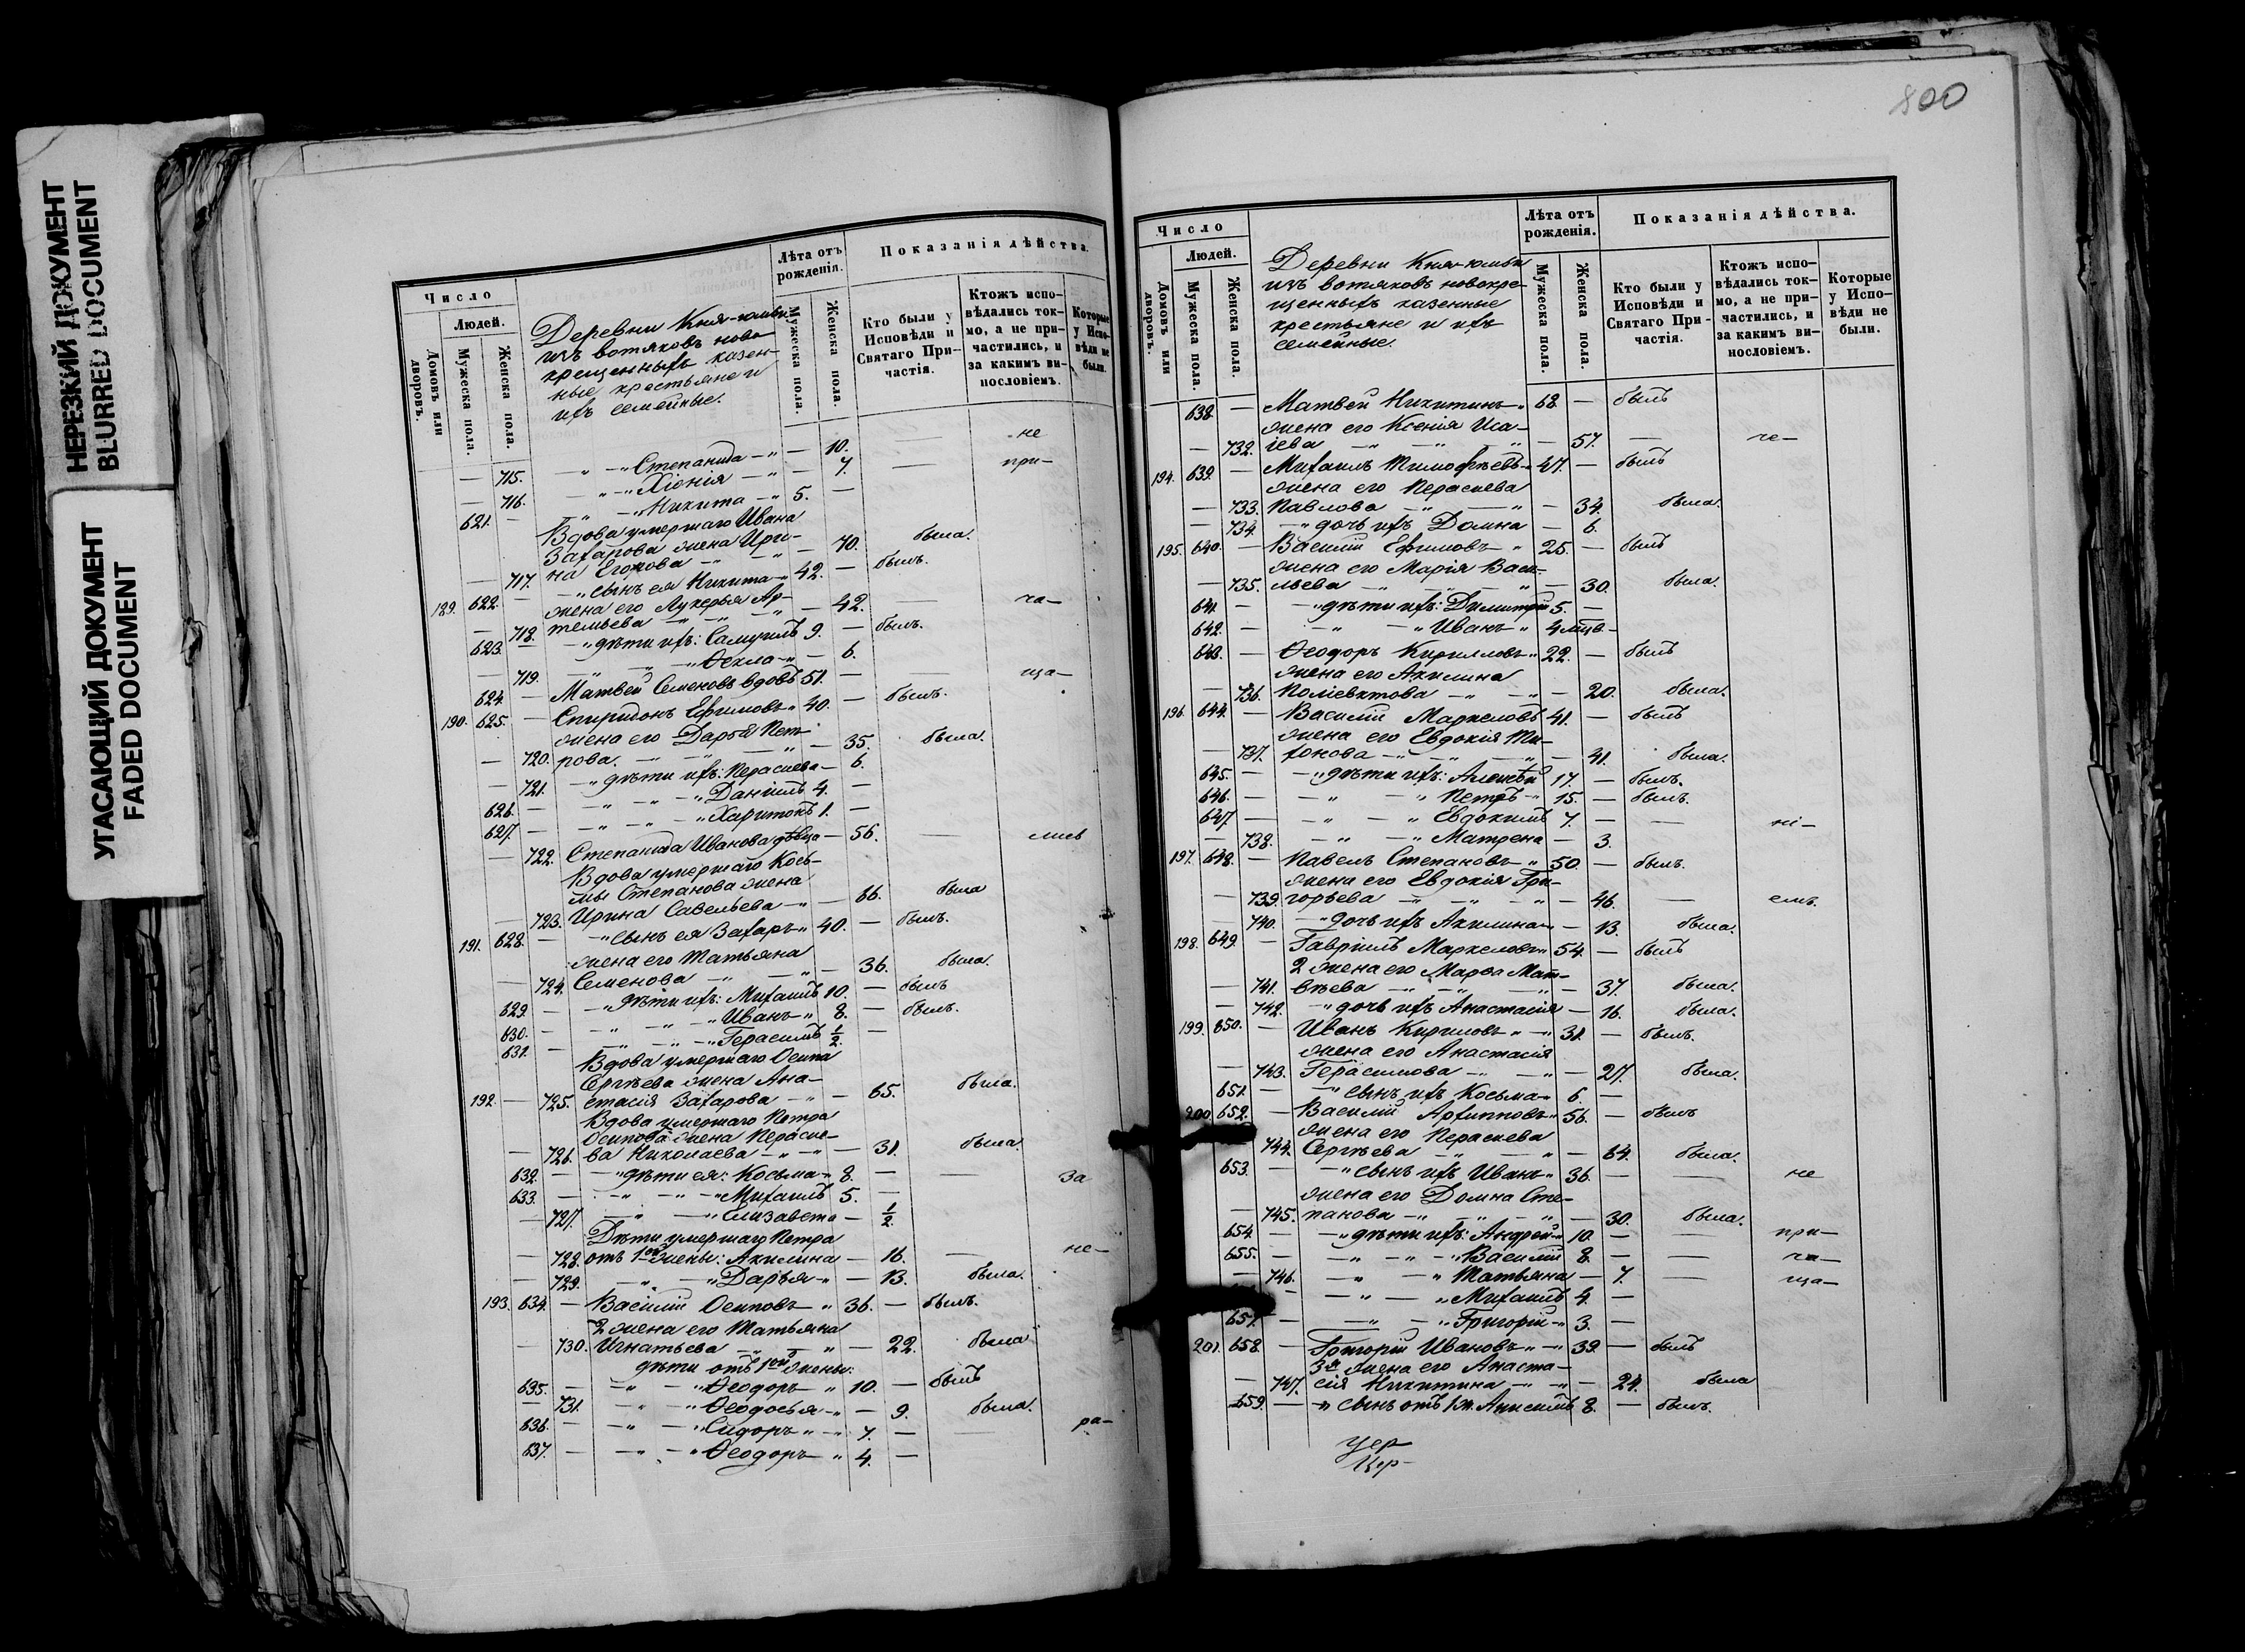 НЕРЕЗКИЙ ДОКУМЕНТ
BLURRED DOCUMENT
УГАСАЮЩИЙ ДОКУМЕНТ
FADED DOCUMENT
Число
Людей.
Домовъ или дворовъ.
Мужеска пола.
Женска пола.
Деревни Княя-юмьи
изъ вотяковъ ново
крещенныхъ казен-
ные крестьяне и
ихъ семейные.
Лѣта отъ рожденія.
Мужеска пола.
Женска пола.
Показанія дѣйства.
Кто были у Исповѣди и Святаго Причастія.
Ктожъ исповѣдались токмо, а не причастились, и за какимъ винословіемъ.
Которые у Исповѣди не были.
— 715. — „ — „ Степанида — „ — 10. не
— 716. — „ — „ Хіонія — „ — 7. — при—
621. — — „ — „ Никита — „ 5. —
Вдова умершаго Ивана
Захарова жена Ири-
— 717. на Егорова — „ — „ — 70. была.
189. 622. — — „ сынъ ея Никита — „ 42. — былъ.
жена его Лукерья Ар-
— 718. темьева — „ — „ — „ — 42. — ча—
623. — — „ дѣти ихъ: Самуилъ 9. — былъ.
— 719. — „ — „ Ѳекла — „ — 6.
624. — Матвей Семеновъ вдовъ 51. — — ща—
190. 625. — Спиридонъ Ефимовъ „ 40. — былъ.
жена его Дарья Пет-
— 720. рова. — „ — „ — „ — 35. была.
— 721. — „ дѣти ихъ: Параскева — 6.
626. — — „ — „ — „ Даніилъ 4. —
627. — — „ — „ — „ Харитонъ 1. —
— 722. Степанида Иванова дѣвица — 56. — лись
Вдова умершаго Кось-
мы Степанова жена
— 723. Ирина Савельева — „ — 66. была
191. 628. — — „ сынъ ея Захаръ „ 40. — былъ.
жена его Татьяна
— 724. Семенова — „ — „ — 36. была.
629. — — „ дѣти ихъ: Михаилъ 10. — былъ
630. — — „ — „ — „ Иванъ — „ 8. — былъ.
631. — — „ — „ — „ Герасимъ 1/2. —
Вдова умершаго Осипа
Сергѣева жена Ана-
192. — 725. стасія Захарова — „ — 65. была.
Вдова умершаго Петра
Осипова жена Параске-
— 726. ва Николаева — „ — „ — 31. была.
632. — — „ дѣти ея: Косьма — „ 8. — — За
633. — — „ — „ — „ Михаилъ 5. —
— 727. — „ — „ Елизавета — 1/2.
Дѣти умершаго Петра
— 728. отъ 1ой жены: Акилина — 16. — не—
— 729. — „ — „ Дарья — „ — 13. была.
193. 634. — Василій Осиповъ — „ 36. — былъ.
2 жена его Татьяна
— 730. Игнатьева — „ — „ — 22. была
дѣти отъ 1ой жены:
635. — — „ — „ Ѳеодоръ — „ 10. — былъ
— 731. — „ — „ Ѳеодосья — „ — 9. была.
636. — — „ — „ Сидоръ „ — „ 7. — — ра—
637. — — „ — „ Ѳеодоръ — „ 4. —
800
Число
Людей.
Домовъ или дворовъ.
Мужеска пола.
Женска пола.
Деревни Княя-юмьи
изъ вотяковъ новокре-
щенныхъ казенные
крестьяне и ихъ
семейные.
Лѣта отъ рожденія.
Мужеска пола.
Женска пола.
Показанія дѣйства.
Кто были у Исповѣди и Святаго Причастія.
Ктожъ исповѣдались токмо, а не причастились, и за какимъ винословіемъ.
Которые у Исповѣди не были.
638. — Матвей Никитинъ „ 68. — былъ
жена его Ксенія Иса-
— 732. іева — „ — „ — „ — 57. — че—
194. 639. — Михаилъ Тимофѣевъ „ 47. — былъ
жена его Параскева
— 733. Павлова — „ — „ — 34. была.
— 734. — „ дочь ихъ Домна — 6.
195. 640. — Василій Ефимовъ — „ 25. — былъ
жена его Марія Васи-
— 735. льева — „ — „ — 30. была.
641. — — „ дѣти ихъ: Димитрій 5. —
642. — — „ — „ Иванъ — „ 4 мѣсе. —
643. — Ѳеодоръ Кирилловъ „ 22. — былъ
жена его Акилина
— 736. Поліевктова — „ — „ — 20. была.
196. 644. — Василій Маркеловъ 41. — былъ
жена его Евдокія Ти-
— 737. хонова — „ — „ — „ — 41. была.
645. — — „ дѣти ихъ: Алексѣй 17. — былъ.
646. — — „ — „ Петръ — „ 15. — былъ.
647. — — „ — „ Евдокимъ 7. — — ні—
— 738. — „ — „ Матрена — 3.
197. 648. — Павелъ Степановъ — „ 50. — былъ.
жена его Евдокія Гри-
— 739. горьева — „ — „ — „ — 46. — емъ.
— 740. — „ дочь ихъ Акилина — „ — 13. была.
198. 649. — Гавріилъ Маркеловъ „ 54. — былъ
2 жена его Марѳа Мат-
— 741. вѣева — „ — „ — „ — 37. была.
— 742. — „ дочь ихъ Анастасія — 16. была.
199. 650. — Иванъ Кириловъ „ — „ 31. — былъ.
жена его Анастасія
— 743. Герасимова — „ — „ — 27. была.
651. — — „ сынъ ихъ Косьма — „ 6. —
200. 652. — Василій Архиповъ „ 56. — былъ
жена его Параскева
744. Сергѣева — „ — „ — 64. была.
653. — — „ сынъ ихъ Иванъ — „ 36. — — не
жена его Домна Сте-
— 745. панова — „ — „ — „ — 30. была.
654. — — „ дѣти ихъ: Андрей „ 10. — — при—
655. — — „ — „ — „ Василій 8. — — ча—
— 746. — „ — „ Татьяна — 7. — ща—
— — „ — „ Михаилъ 4. —
657. — — „ — „ Григорій — „ 3. —
201. 658. — Григорій Ивановъ „ — „ 39. — былъ
3я жена его Анаста-
— 747. сія Никитина — „ — „ — 24. была
659. — — „ сынъ отъ 1ж. Анисимъ 8. — былъ.